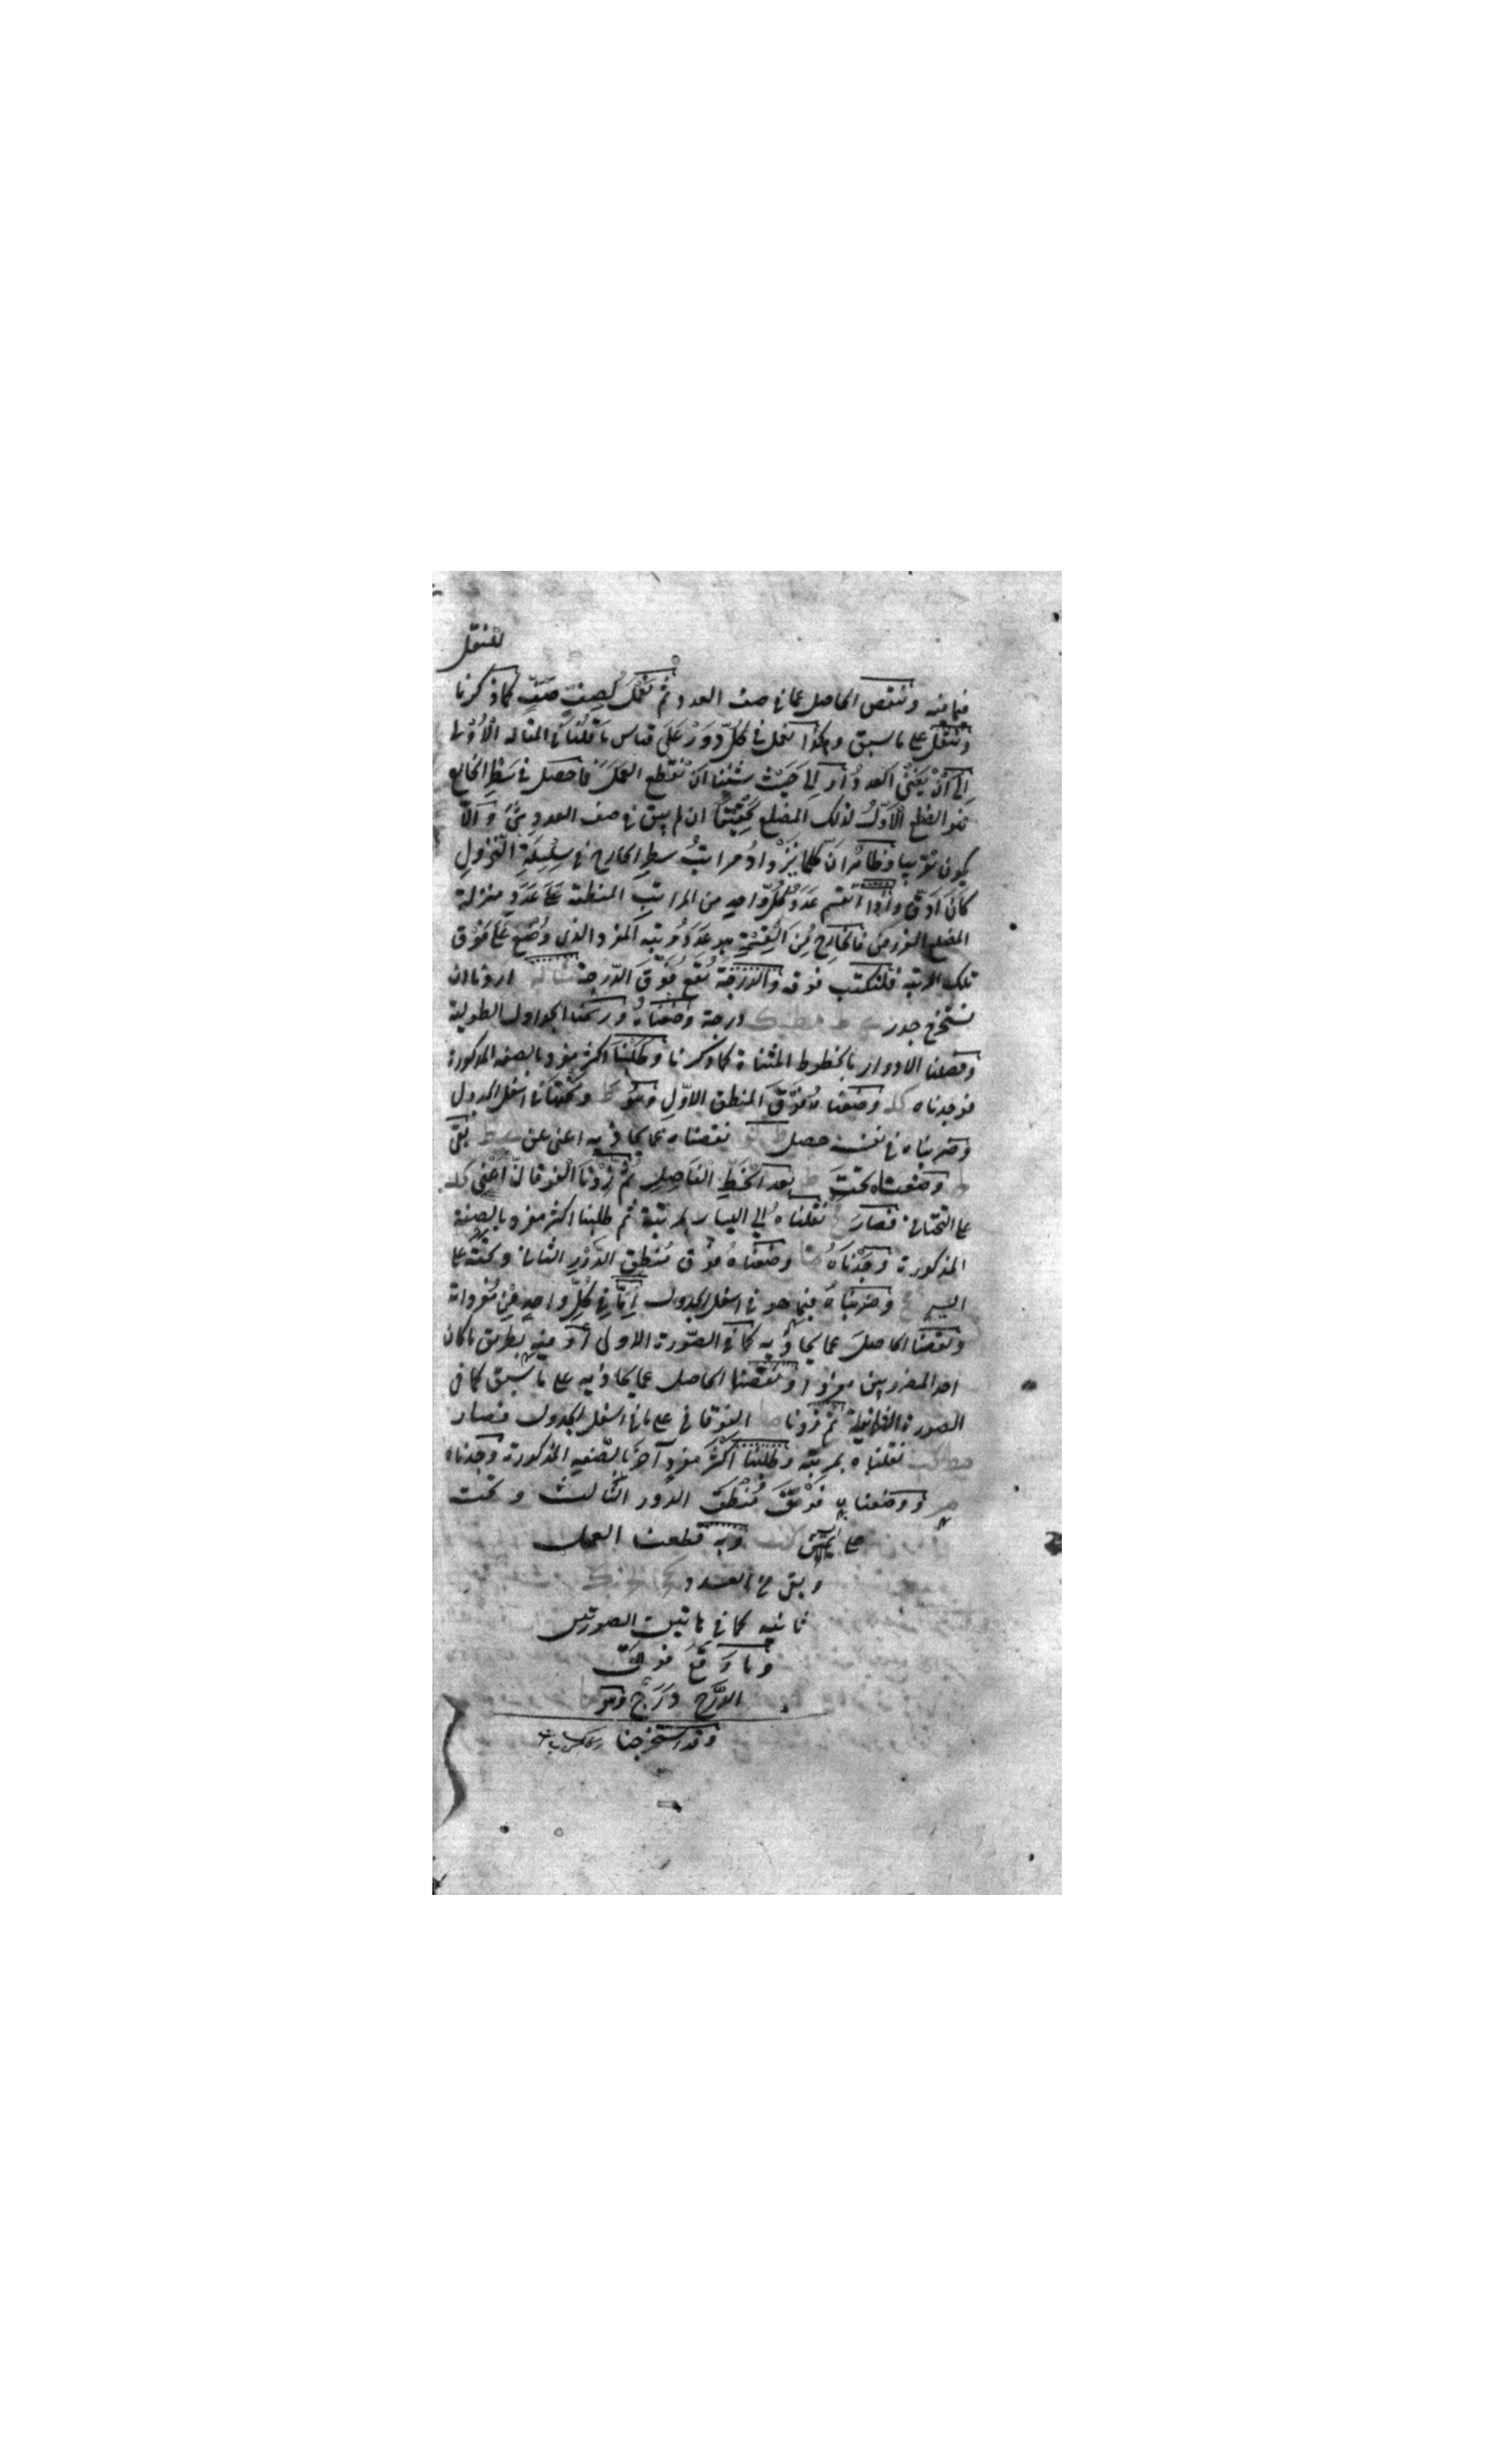 لننقل
فيما فيه وننقص الحاصل عما في صف العدد ثم نعمل لصف صف كما ذكرنا
وننقل على ما سبق وهكذا نعمل في كل دور على قياس ما قلنا في المثال الأول
إلى أن يفنى العدد أو إلى حيث شئنا أن نقطع العمل فما حصل في سطر الخارج
فهو الضلع الأول لذلك المضلع تحقيقا ان لم يبق في صف العدد شئ وإلا
يكون تقريبا وظاهر ان كلما يزداد مراتب سطر الخارج في سلسلة النزول
كان أدق وإذا انقسم عدد كل واحد من المراتب المنطقة على عدد منزلة
المضلع المفروض فالخارج من القسمة هو عدد مرتبة المفرد الذي وضع على فوق
تلك المرتبة فلنكتب فوقه والدرجة تقع فوق الدرجة مثاله اردنا ان
نستخرج جذر درجة وضعناه ورسمنا الجداول الطولية
وفصلنا الادوار بالخطوط المثناة كما ذكرنا وطلبنا اكثر مفرد بالصفة المذكورة
فوجدناه كله وضعناه فوق المنطق الاول وهو وتحتنا في اسفل الجدول
وضربناه في نفسه حصل نقصناه عما يحاذيه اعني عن بقي
وضعناه تحت بعد الخط الفاصل ثم زدنا الفوقاني اعني كله
على التحتاني فصار نقلناه إلى اليسار بمرتبة ثم طلبنا اكثر مفرد بالصفة
المذكورة وجدناه وضعناه فوق منطق الدور الثاني وتحته على
اليسير وضربناه فيما هو في اسفل الجدول إما في كل واحد من مفرداته
ونقصنا الحاصل عما يحاذيه كما في الصورة الاولى أو فيه بطريق ما كان
احد المضروبين مفردا ونقصنا الحاصل عما يحاذيه على ما سبق كما في
الصورة الثانية ثم زدنا الفوقاني على ما في اسفل الجدول فصار
نقلناه بمرتبة وطلبنا أكثر مفرد آخر بالصفة المذكورة وجدناه
ووضعناه فوق منطق الدور الثالث وتحت
على وبه قطعنا العمل
وبقي من العدد
ثانية كما في هاتين الصورتين
وما وقع فوق
الدرج درج وهو
وقد استخرجنا